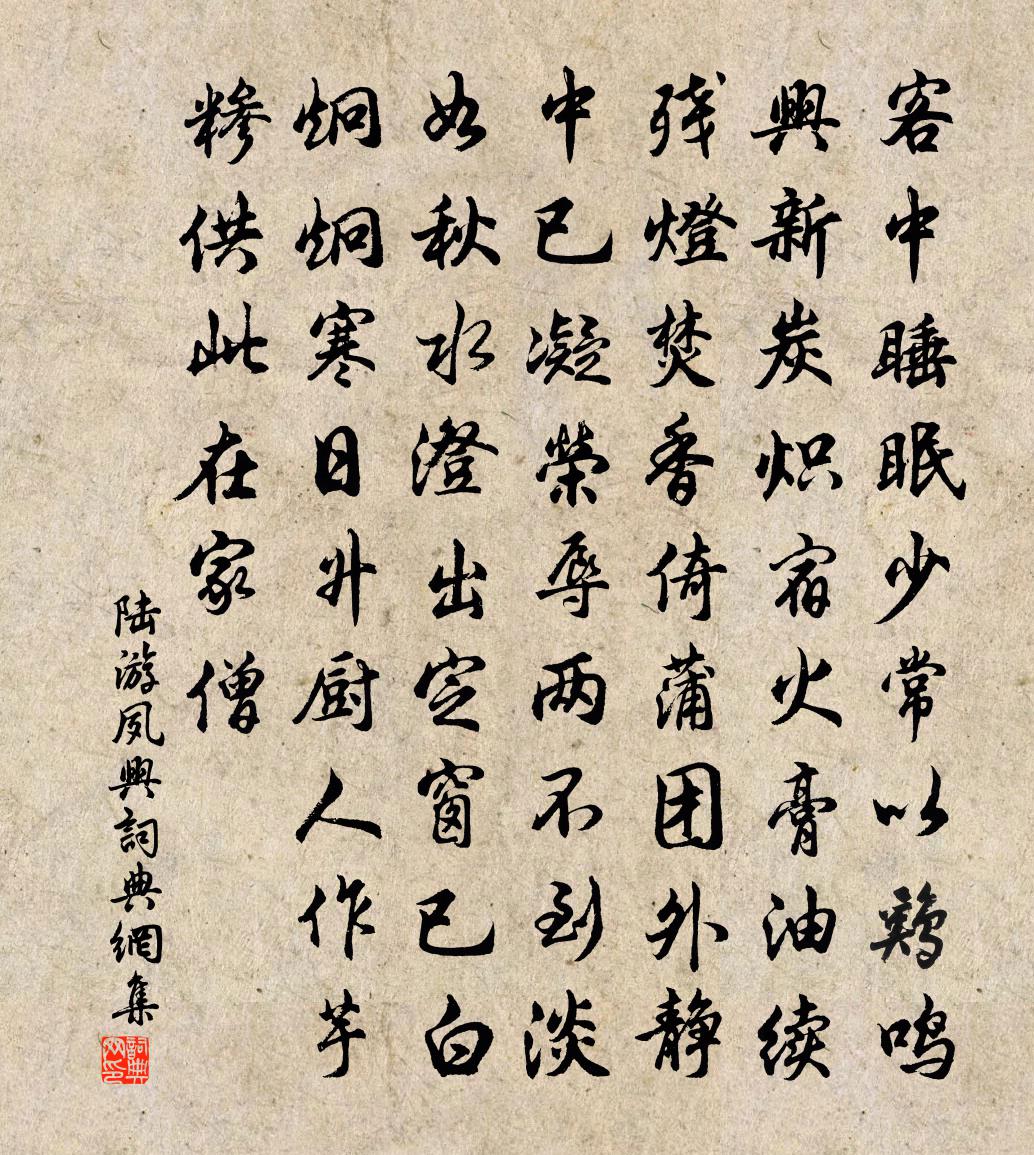 客中睡眠少常以鷄鸣
興新炭炽宿火膏油续
残燈焚香倚蒲团外静
中已凝榮辱两不到淡
如秋水澄出定窗已白
炯炯寒日升厨人作芋
糝供此在家僧
陆游夙興詞典網集
詞典网印